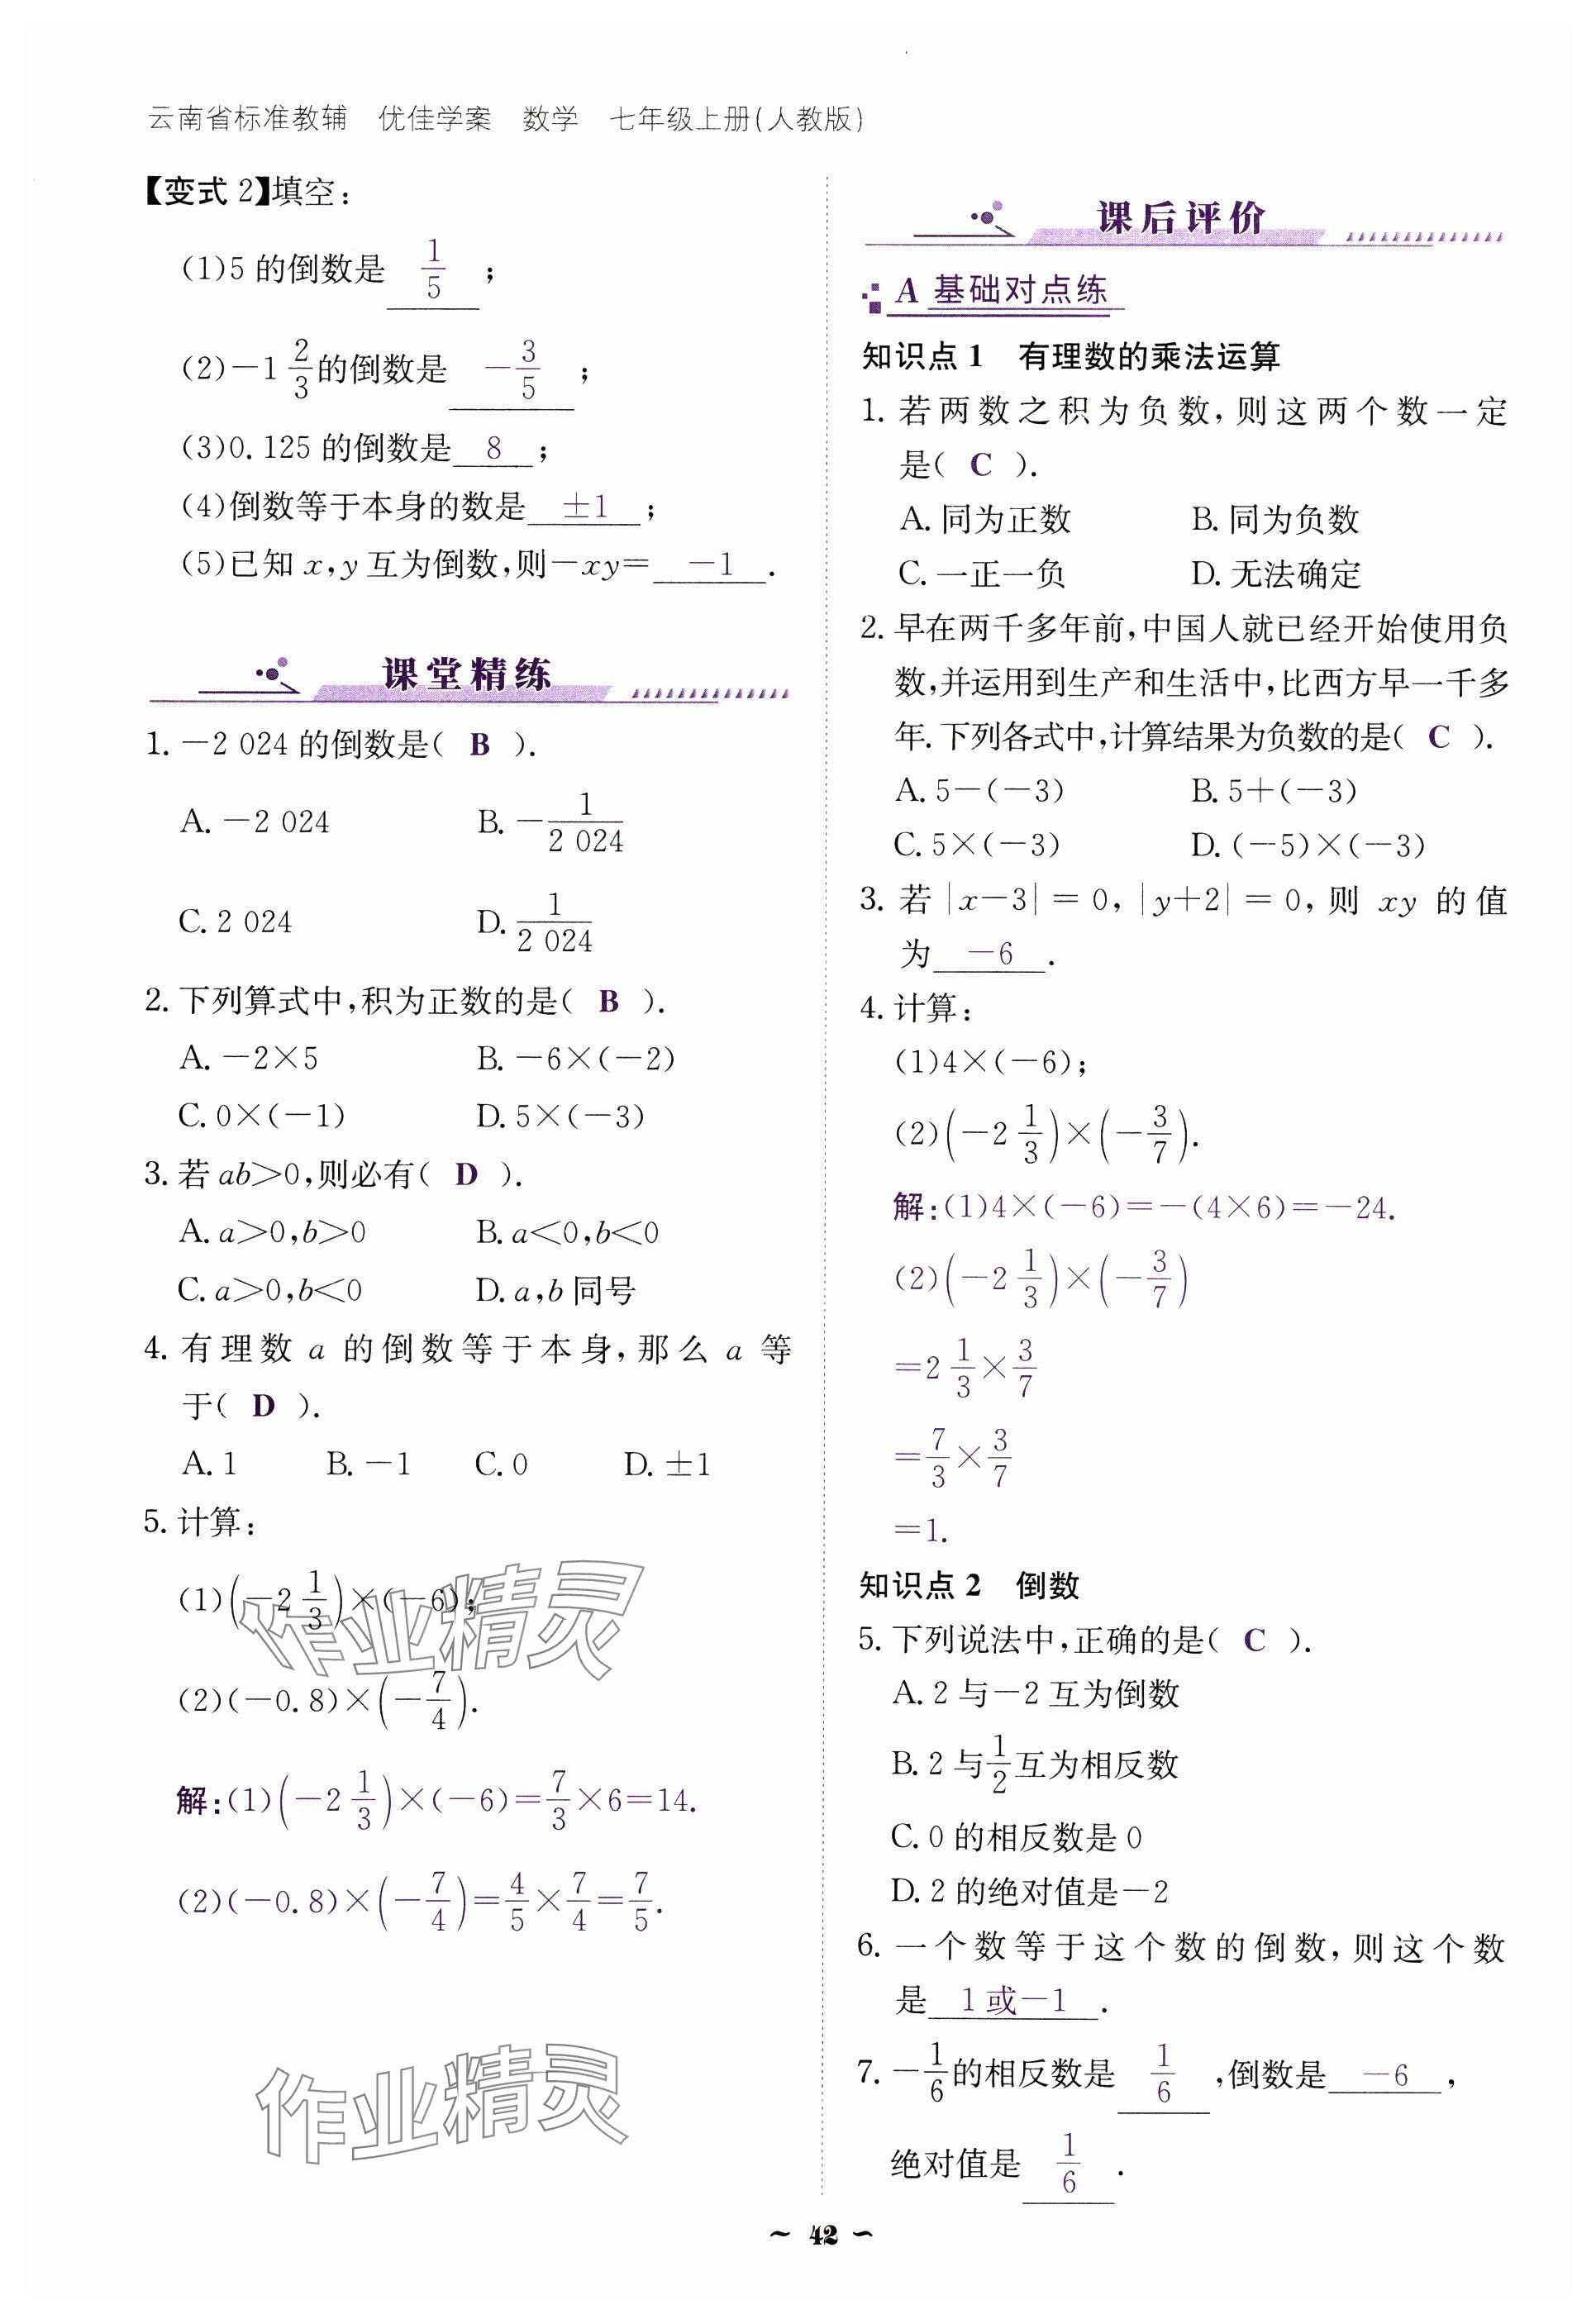 云南省标准教辅 优佳学案 数学 七年级上册(人教版)
【变式 2】填空:
(1)5 的倒数是 1/5 ;
(2)-1 2/3 的倒数是 -3/5 ;
(3)0.125 的倒数是 8 ;
(4)倒数等于本身的数是 ±1 ;
(5)已知 x,y 互为倒数,则-xy= -1 .
课堂精练
1. -2 024 的倒数是( B ).
A. -2 024 B. -1/2 024
C. 2 024 D. 1/2 024
2. 下列算式中,积为正数的是( B ).
A. -2×5 B. -6×(-2)
C. 0×(-1) D. 5×(-3)
3. 若 ab>0,则必有( D ).
A. a>0,b>0 B. a<0,b<0
C. a>0,b<0 D. a,b 同号
4. 有理数 a 的倒数等于本身,那么 a 等
于( D ).
A. 1 B. -1 C. 0 D. ±1
5. 计算:
(1)(-2 1/3)×(-6);
(2)(-0.8)×(-7/4).
解:(1)(-2 1/3)×(-6)=7/3×6=14.
(2)(-0.8)×(-7/4)=4/5×7/4=7/5.
作业精灵
作业精灵
课后评价
A 基础对点练
知识点 1 有理数的乘法运算
1. 若两数之积为负数,则这两个数一定
是( C ).
A. 同为正数 B. 同为负数
C. 一正一负 D. 无法确定
2. 早在两千多年前,中国人就已经开始使用负
数,并运用到生产和生活中,比西方早一千多
年. 下列各式中,计算结果为负数的是( C ).
A. 5-(-3) B. 5+(-3)
C. 5×(-3) D. (-5)×(-3)
3. 若 |x-3| = 0, |y+2| = 0, 则 xy 的值
为 -6 .
4. 计算:
(1)4×(-6);
(2)(-2 1/3)×(-3/7).
解:(1)4×(-6)=-(4×6)=-24.
(2)(-2 1/3)×(-3/7)
=2 1/3×3/7
=7/3×3/7
=1.
知识点 2 倒数
5. 下列说法中,正确的是( C ).
A. 2 与-2 互为倒数
B. 2 与1/2互为相反数
C. 0 的相反数是 0
D. 2 的绝对值是-2
6. 一个数等于这个数的倒数,则这个数
是 1 或-1 .
7. -1/6的相反数是 1/6 ,倒数是 -6 ,
绝对值是 1/6 .
~ 42 ~